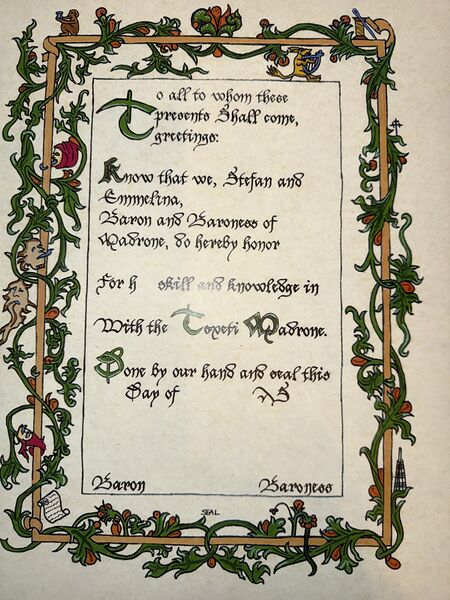 To all to whom these
presents Shall come,
greetings:
Know that we, Stefan and
Emmelina,
Baron and Baroness of
Madrone, do hereby honor
For h skill and knowledge in
With the Topeti Madrone.
Done by our hand and seal this
Day of AS
Baron Baroness
SEAL